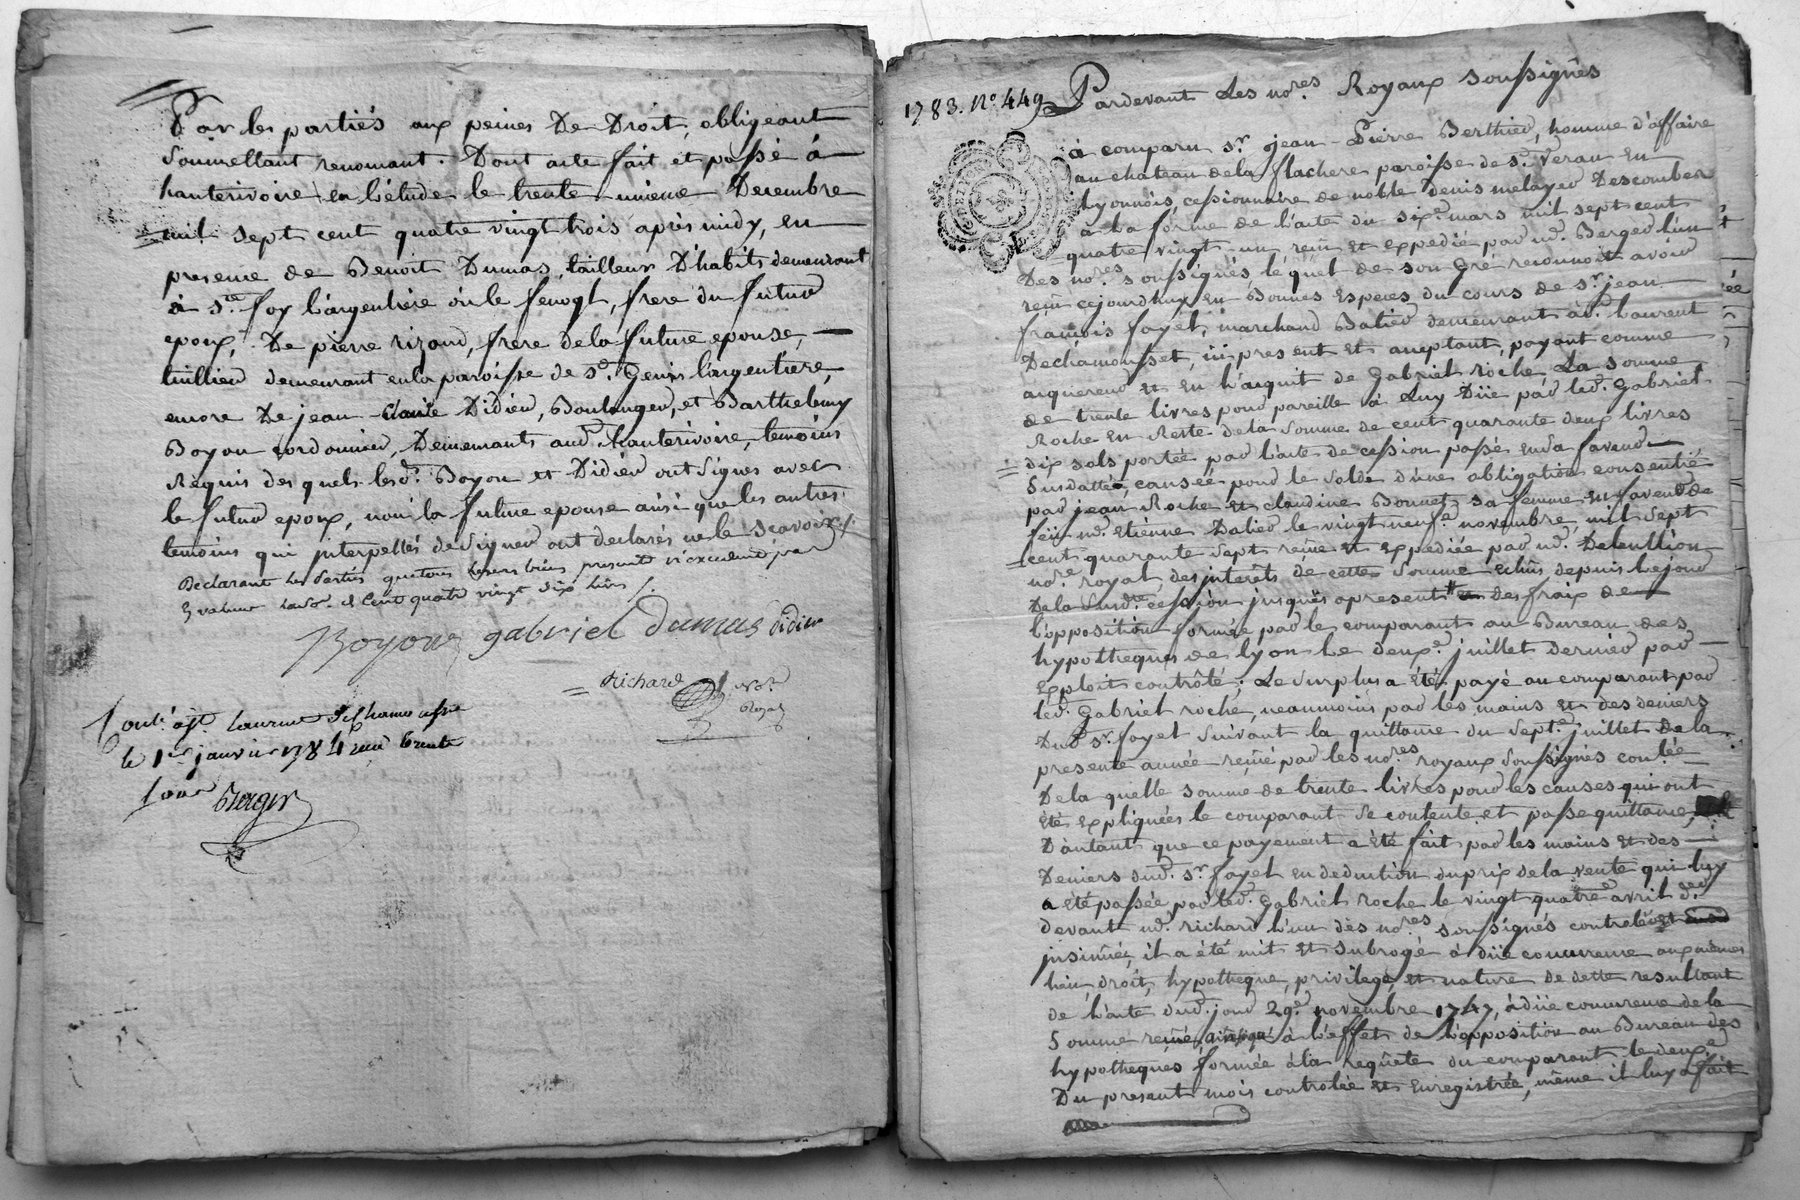 Par les partiés aux peines De Droit, obligeant
Soumettant renonçant. Dont acte fait et passé á
hauterivoire en L'étude le trente unieme Decembre
mil sept cent quatre vingt trois après midy, en
presence de Benoit Dumas, tailleur D'habits demeurant
à Ste foy L'argentiére frere du futur
epoux, De pierre rizand, frere dela future epouse,
tuillier demeurant en la paroisse de St. Genis l'argentiere,
encore De jean Claude Didier, Boulanger, et Barthelemy
Boyon cordonnier, Demeurants aud. hauterivoire, temoins
Requis des quels lesd. Boyon et Didier ont Signés avec
le futur epoux, non la future epouse ainsi que les autres
temoins qui interpellés de Signer ont declarés ne le Scavoir./.
Declarant les parties que tous leurs biens presents n'excedent pas
En valeur la so. de Cent quatre vingt dix livres /.
Boyon gabriel dumas didier
Richard No.re
Royal
Cont. à St. Laurent de Chamousset
le 1er janvier 1784 reçu trente
sous Berger
1783. No. 449
Pardevant Les no.res Royaux soussignés
à comparu Sr. jean-Pierre Berthier, homme d'affaire
au chateau de la flachere paroisse de St. Veran en
Lyonnois, cessionnaire de noble denis melayer Descombes
à la forme de l'acte du six.e mars mil sept cent
quatre vingt un reçu et expedié par Me. Berger L'un
Des no.res soussignés lequel de son Gré reconnoit avoir
reçu cejourdhuy en Bonnes Especes du cours de Sr. jean
françois fayet, marchand Batier demeurant à St. Laurent
De chamousset, ici present et acceptant, payant comme
acquereur et en l'acquit de Gabriel roche La somme
de trente livres pour pareille à Luy Düe par led. Gabriel
Roche en Reste dela Somme de cent quarante deux livres
dix sols portée par l'acte de cession passé en sa faveur
Susdatté, causée pour le Solde d'une obligation consentie
par jean Roche et claudine Bonnet sa femme en faveur de
feu Me. Etienne Dalier le vingt neuf.e novembre mil sept
cent quarante sept reçue et expediée par Me. Delentlion
no.re royal des interêts de cette Somme echus depuis le jour
De la susd.te cession jusques apresent et des fraix de
l'opposition formée par le comparant au Bureau des
hypotheques de lyon Le deux.e juillet dernier par
Exploit contrôlé; Le Surplus a été payé au comparant par
led. Gabriel roche, neanmoins par les mains et des deniers
Dud. Sr. fayet suivant la quittance du Sept.e juillet de la
presente année reçue par les no.res royaux soussignés con.lée
De la quelle somme de trente livres pour les causes qui ont
été Expliquées le comparant Se contente et passe quittance,
D'autant que ce payement a été fait par les mains et des
Deniers dud. Sr. fayet en deduction du prix de la vente qui luy
a été passée par led. Gabriel roche le vingt quatre avril d.er
devant Me. richard l'un des no.res soussignés controllée et
insinuée, il a été mit et subrogé à düe concurrence aux mêmes
lieu, droit, hypotheque, privilege, et nature de dette resultant
de l'acte dud. jour 29.e novembre 1747, à düe concurence de la
Somme reçue ainsi que à L'effet de L'opposition au Bureau des
hypotheques formée à la requête du comparant le deux.e
Du present mois controlée et Enregistrée, même il luy a fait